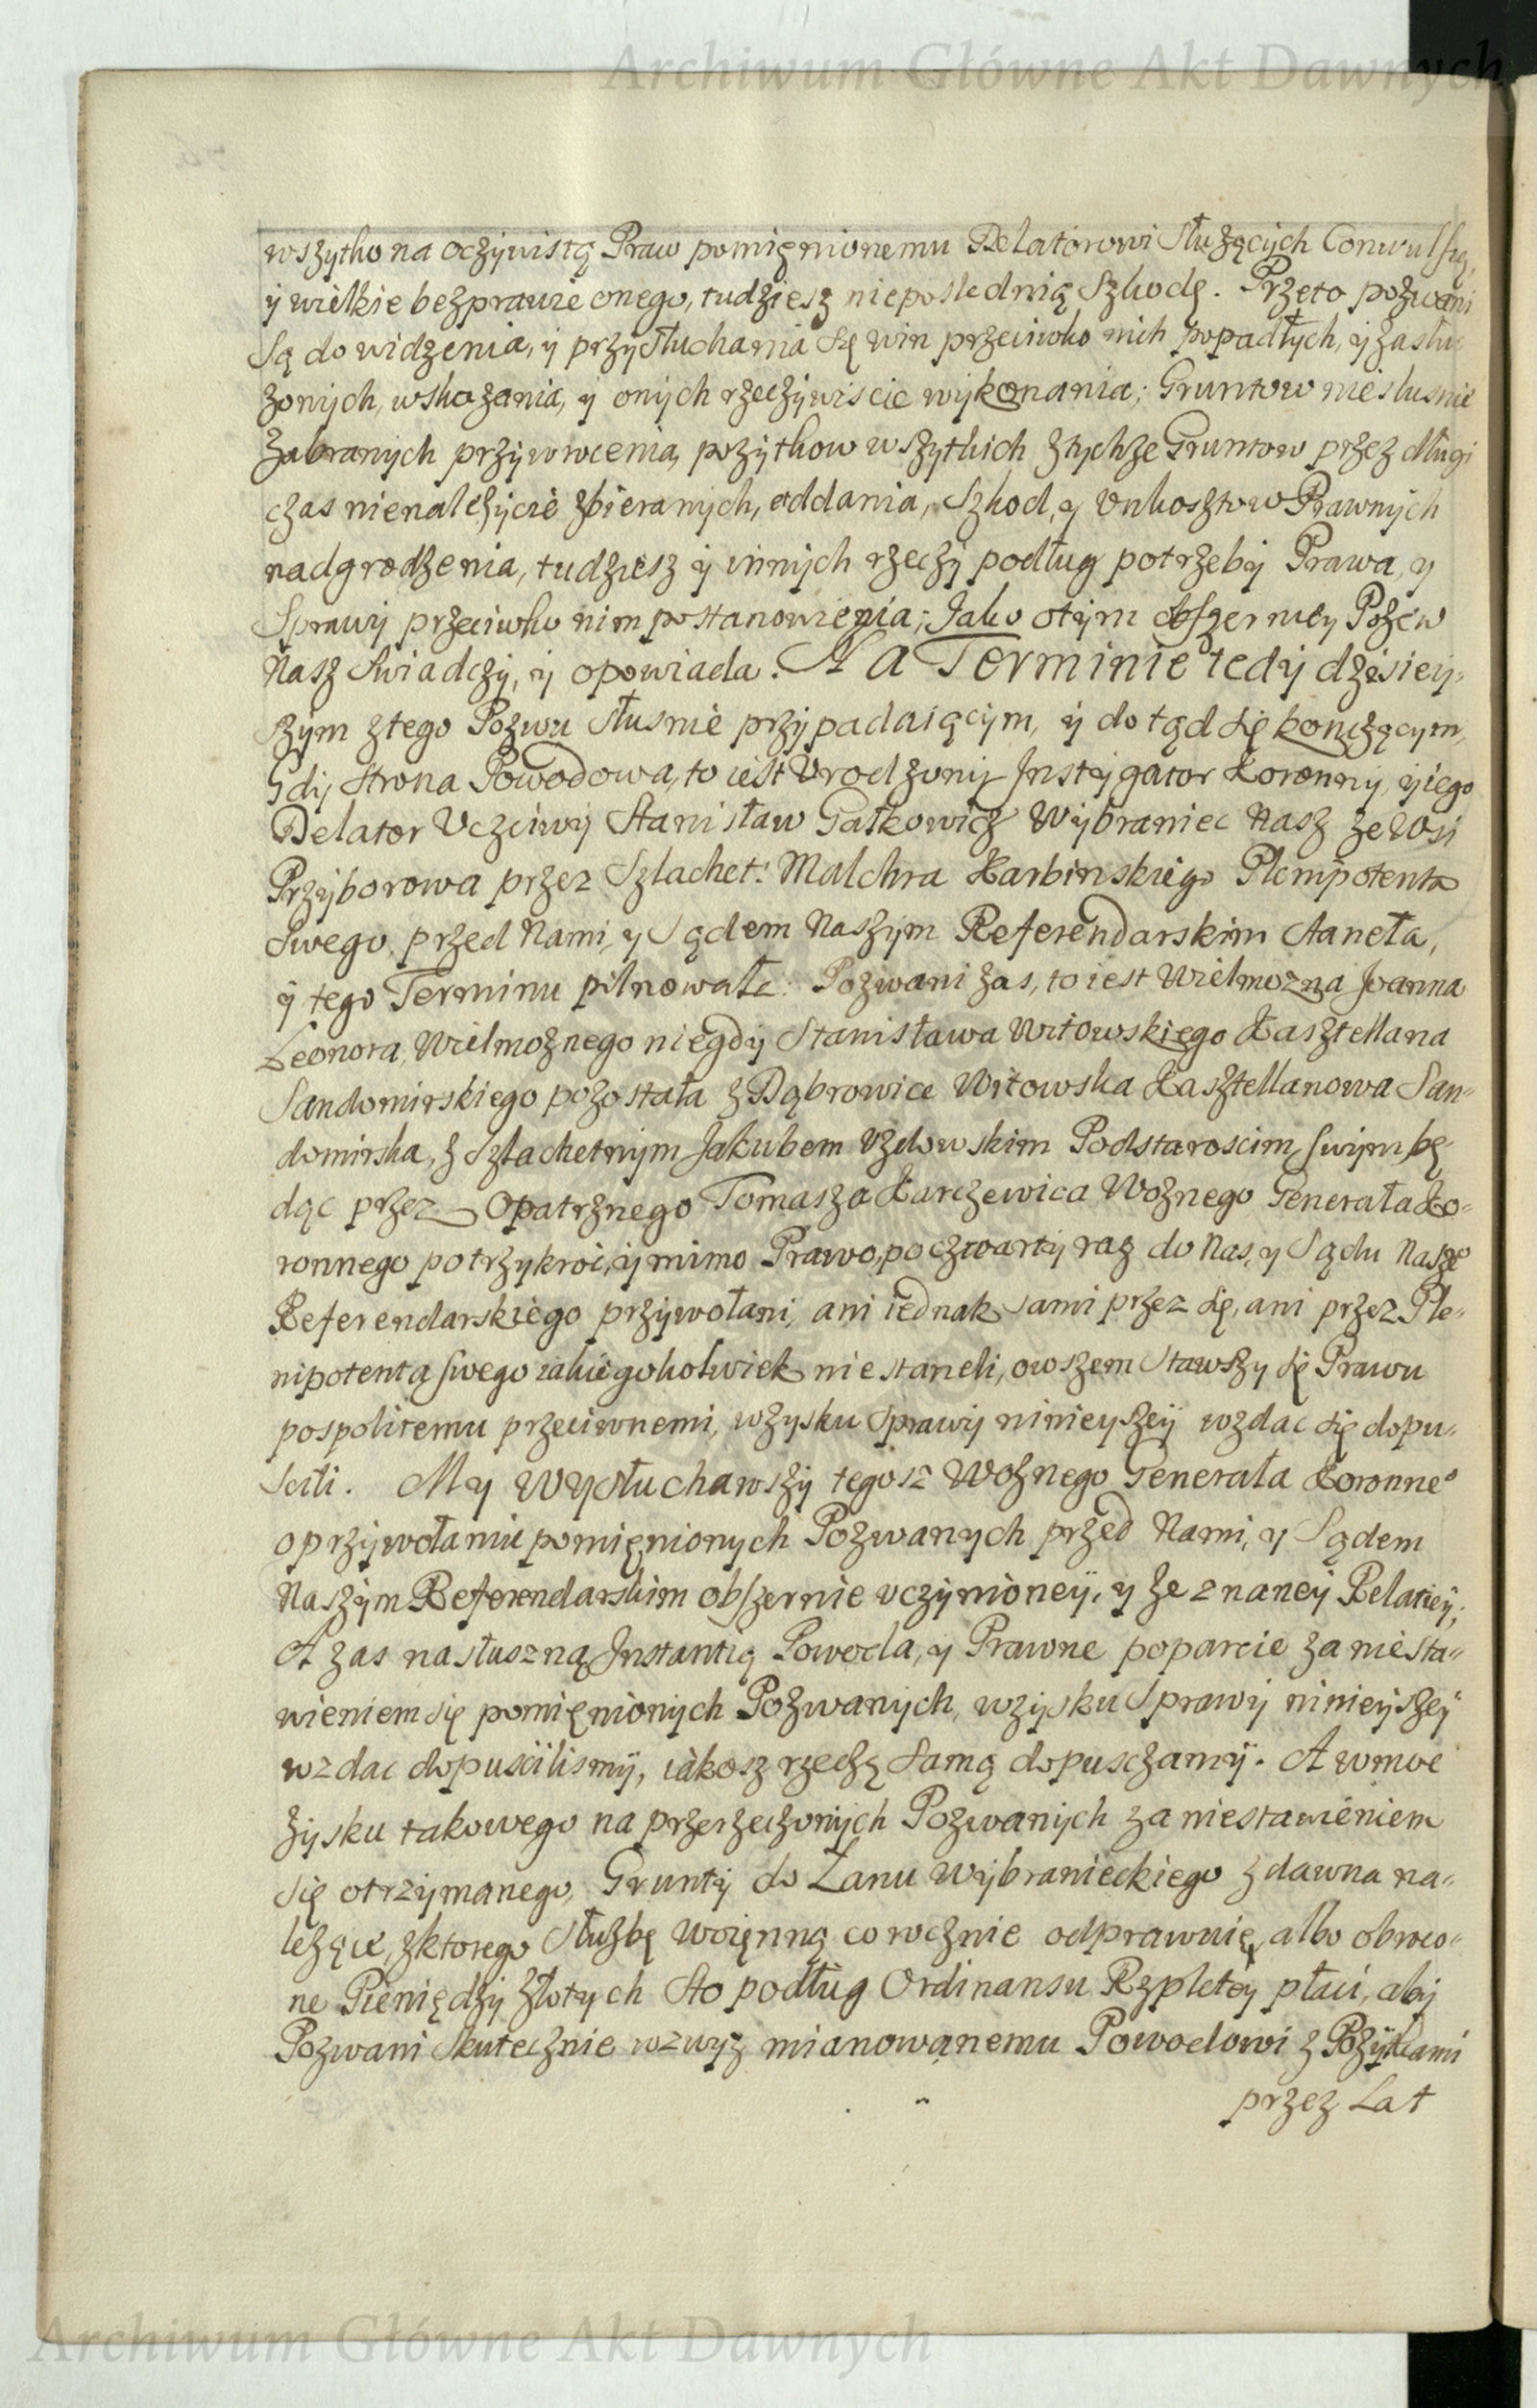 Archiwum Główne Akt Dawnych
wszytko na oczywistą Praw pomięnionemu Delatorowi służących Conwulsyą,
y wielkie bezprawie onego, tudziesz nieposlednią Szkodę. Przeto pozwani
Są do widzenia, y przysłuchania Się win przeciwko nich popadłych, y zasłu-
zonych, wskazania, y onych rzeczywiscie wykonania; Gruntow nieslusnie
zabranych przywrocenia, pozytkow wszytkich z tychze Gruntow przez długi
czas nienalezycie zbieranych, oddania, Szkod, y Vnkosztow Prawnych
nadgrodzenia, tudziesz y innych rzeczy podług potrzeby Prawa, y
Sprawy przeciwko nim postanowienia; Jako otym obszerniey Pozew
Nasz Swiadczy, y opowiada. Na Terminie tedy dzisiey-
szym z tego Pozwu słusnie przypadaiącym, y do tąd się konczącym,
Gdy Strona Powodowa, to iest Vrodzony Instygator Koronny, y iego
Delator Vczciwy Stanisław Gałkowicz Wybraniec Nasz ze Wsi
Przyborowa przez Szlachet: Malchra Karbinskiego Plenipotenta
Swego przed Nami, y Sądem Naszym Referendarskim Staneła,
y tego Terminu pilnowała: Pozwani zas, to iest Wielmozna Joanna
Leonora, Wielmoznego niegdy Stanisława Witowskiego Kasztellana
Sandomirskiego pozostała z Dąbrowice Witowska Kasztellanowa San-
domirska, z Szlachetnym Jakubem Vzdowskim Podstaroscim swym bę-
dąc przez Opatrznego Tomasza Karczewica Woznego Generała Ko-
ronnego potrzykroc, y mimo Prawo, poczwarty raz do Nas, y Sądu Nasze°
Referendarskiego przywołani, ani iednak sami przez się, ani przez Ple-
nipotenta swego iakiegokolwiek nie staneli, owszem Stawszy się Prawu
pospolitemu przeciwnemi, wzysku Sprawy ninieyszey wzdac się dopu-
scili. My Wysłuchawszy tegosz Woznego Generała Koronne°
o przywołaniu pomięnionych Pozwanych przed Nami, y Sądem
Naszym Referendarskim obszernie vczynioney, y zeznaney Relatiey;
A zas nasłuszną Instantią Powoda, y Prawne poparcie za niesta-
wieniem się pomięnionych Pozwanych, wzysku Sprawy ninieyszey
wzdac dopuscilismy, iakosz rzeczą Samą dopusczamy. A wmoc
zysku takowego na przerzeczonych Pozwanych za niestawieniem
się otrzymanego, Grunty do Łanu Wybranieckiego zdawna na-
lezące, z ktorego Służbę Woięnną corocznie odprawuię, albo obroco-
ne Pieniędzy złotych Sto podług Ordinansu Rzpltey płaci, aby
Pozwani Skutecznie wzwyz mianowanemu Powodowi z Pozytkami
przez Lat
Archiwum Główne Akt Dawnych